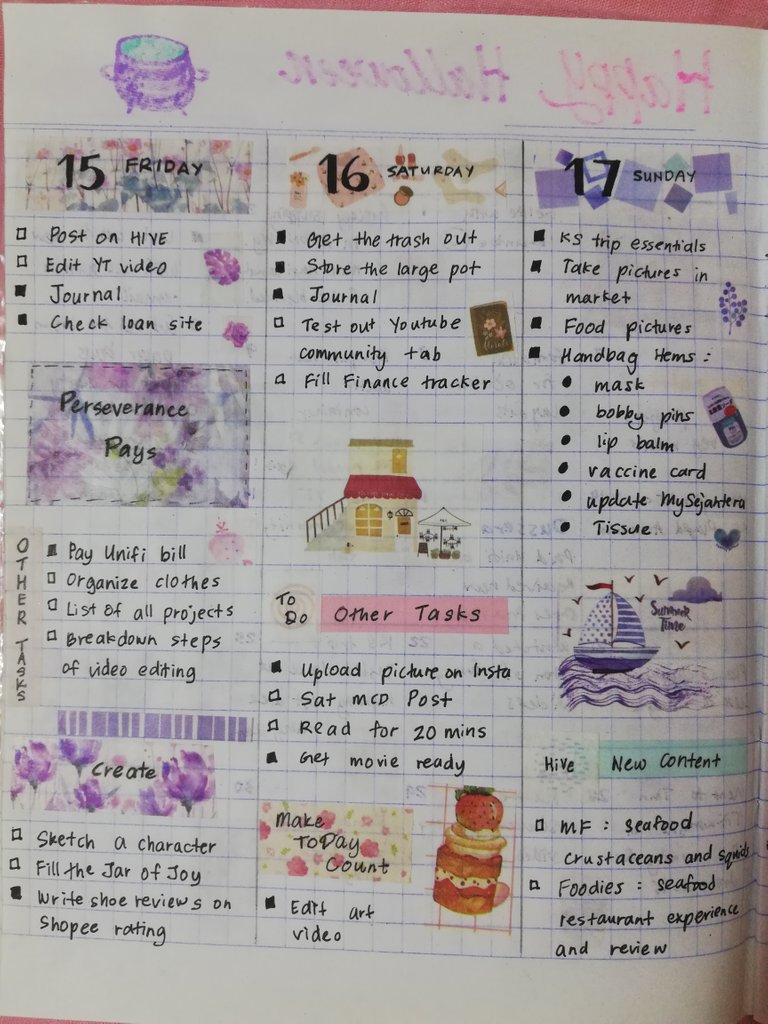 Happy Halloween
15 FRIDAY
Post on HIVE
Edit YT video
Journal
Check loan site
Perseverance
Pays
OTHER TASKS
Pay Unifi bill
Organize clothes
List of all projects
Breakdown steps
of video editing
Create
Sketch a character
Fill the Jar of Joy
Write shoe reviews on
Shopee rating
16 SATURDAY
Get the trash out
Store the large pot
Journal
Test out Youtube
community tab
Fill Finance tracker
TO
DO
Other Tasks
Upload picture on Insta
Sat MCD Post
Read for 20 mins
Get movie ready
Make
ToDay
Count
Edit art
video
17 SUNDAY
KS trip essentials
Take pictures in
market
Food pictures
Handbag Items:
mask
bobby pins
lip balm
vaccine card
update MySejahtera
Tissue
Summer
Time
Hive New Content
MF: seafood
crustaceans and squids
Foodies: seafood
restaurant experience
and review